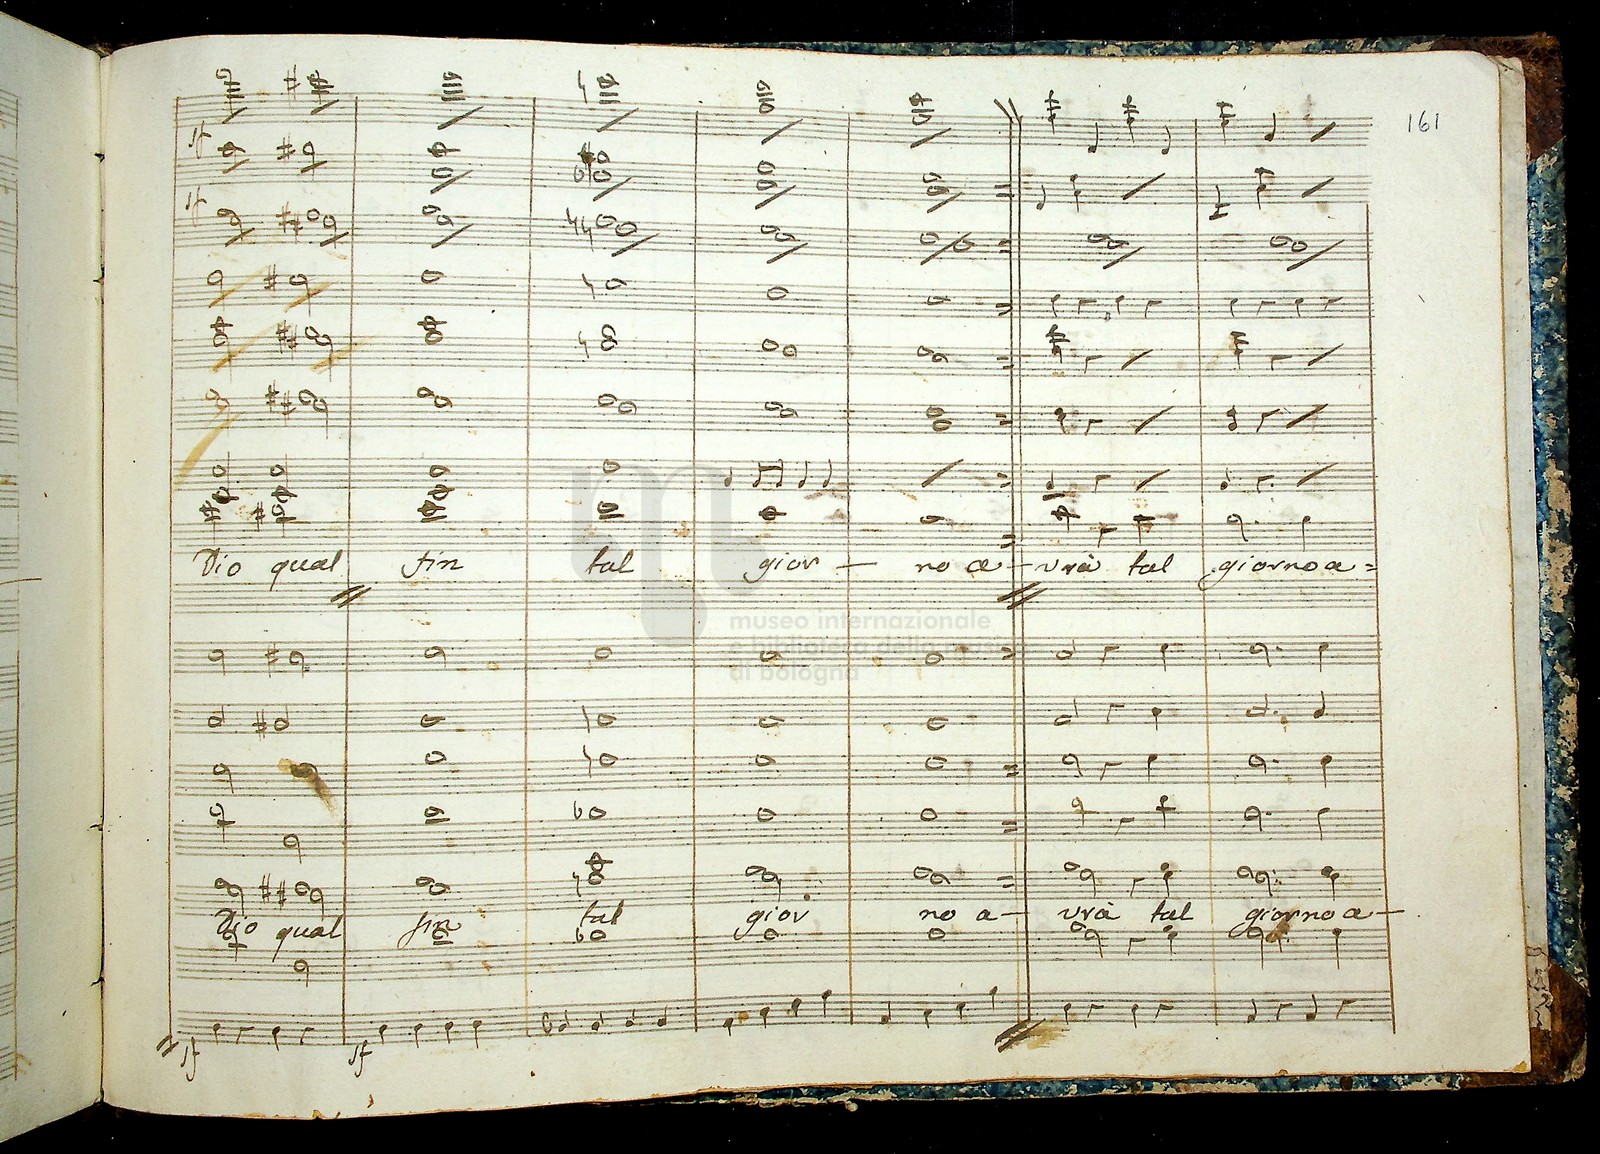 161
sf
sf
Dio qual fin tal gior — no a — vrà tal giorno a =
museo internazionale
e biblioteca della musica
di bologna
Dio qual fin tal gior no a — vrà tal giorno a —
sf sf